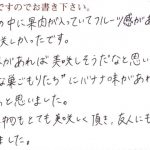 ですのでお書き下さい。
の中に果肉が入っていてフルーツ感があ
味しかったです。
があれば美味しそうだなと思い
な巣ごもりたち"にバナナ味があれ
っと思いました。
中めもとても美味しく頂き、友人にも
ました。